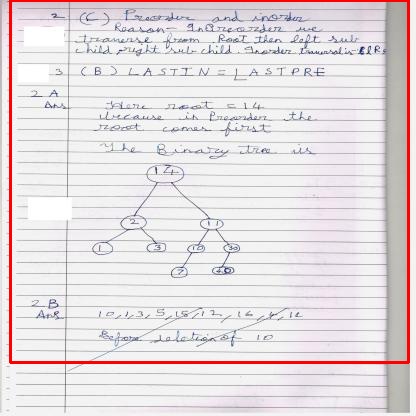 2 (C) Preorder and inorder
Reason - In Preorder we
traverse from Root then left sub
child right sub child. Inorder traversal is LRe
3 (B) LASTIN = LASTPRE
2 A
Ans Here root = 14
because in Preorder the
root comes first
The Binary tree is
14
2 11
1 3 10 30
7 40
2 B
Ans 10, 1, 3, 5, 15, 12, 16, 4, 12
Before deletion of 10